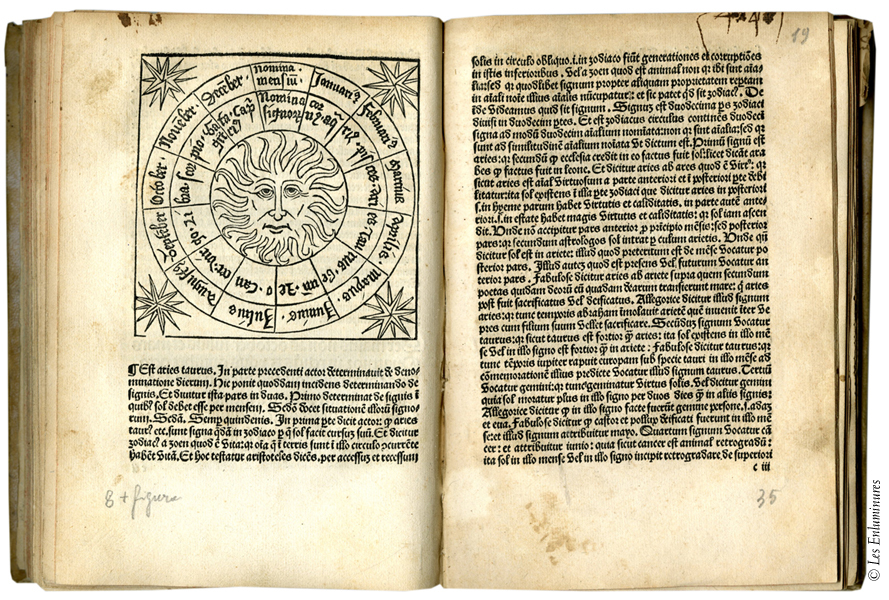 Nomina mensiū.
Januari⁹
Februari⁹
Martius
Aprilis
Mayus
Junius.
Julius
August⁹
Septēber
Octōber.
Nouēber.
Decēber.
Nomina signorū
pisces
tau rus
Gemī.
¶ Est aries taurus. In parte precedenti actor determinauit de deno-
minatione dierum. Hic ponit quoddam incidens determinando de
signis. Et diuitur ista pars in duas. Primo determinat de signis ī
quibꝰ sol debet esse per mensem. Sedō docet situationē illorū signo
rum. Sedā. Semp quindenis. In prima pte dicit actor: ꝙ aries
taurꝰ etc. sunt signa qdā in zodiaco p q̄ sol facit cursū suū. Et dicitur
zodiacꝰ a zoen quod ē vita: qr oīa q̄ ī terris sunt ī illo circulo
habēt vitā. Et hoc testatur aristoteles dicēs. per accessum et recessum
8 + figura
19
solis in circulo obliquo .i. in zodiaco fiūt generationes et corruptiōes
in istis inferioribus. Vel a zoen quod est animal non qr ibi sint aīa-
lia: sed qr quodlibet signum propter aliquam proprietatem reptam
in aīali noīe illius aīalis nūcupatur: et sic patet qd sit zodiacꝰ. De
īde videamus quid sit signum. Signum est duodecima ps zodiaci
diuisi in duodecim ptes. Et est zodiacus circulus continēs duodeci
signa ad modū duodecim aīalium nomīata: non qr sint aīalia: sed qr
sunt ad similitudinē aīalium noīata vt dictum est. Primū signū est
aries: qr secundū ꝙ ecclesia credit in eo factus fuit sol: licet dicāt ara
bes ꝙ factus fuit in leone. Et dicitur aries ab ares quod ē virtꝰ: qr
sicut aries est aīal virtuosum a parte anteriori et ī posteriori pte debi
litatur: ita sol existens ī illa pte zodiaci que dicitur aries in posteriori
.s. in hyeme parum habet virtutis et caliditatis. in parte autē ante-
riori .s. in estate habet magis virtutis et caliditatis: qr sol iam ascen
dit. Vnde nō accipitur pars anterior p precipio mēsis: sed posterior
pars: qr secundum astrologos sol intrat p culum arietis. Vnde qn̄
dicitur sol est in ariete: illud quod preteritum est de mēse vocatur po
sterior pars. Illud autem quod est presens vel futurum vocatur an
terior pars. Fabulose dicitur aries ab ariete supra quem secundum
poetas quidam deorū cū quadam dearum transierunt mare: q̄ aries
post fuit sacrificatus vel deificatus. Allegorice dicitur illud signum
aries: qr tunc temporis abraham imolauit arietē quē inuenit īter ve
pres cum filium suum vellet sacrificare. Secūdum signum vocatur
taurus: qr sicut taurus est fortior ꝙ aries: ita sol existens in illo mē
se vel in illo signo est fortior ꝙ in ariete: Fabulose dicitur taurus: qr
tunc tēporis iupiter rapuit europam sub specie tauri in illo mēse ad
cōmemorationē illius predicte vocatur illud signum taurus. Tertiū
vocatur gemini: qr tunc geminatur virtus solis. Vel dicitur gemini
quia sol moratur plus in illo signo per duos dies ꝙ in aliis signis:
Allegorice dicitur ꝙ in illo signo facte fuerūt gemine persone .s. adam
et eua. Fabulose dicitur ꝙ castor et pollux deificati fuerunt in illo mē
se: et illud signum attribuitur mayo. Quartum signum vocatur cā
cer: et attribuitur iunio: quia sicut cancer est animal retrogradū:
ita sol in illo mense vel in illo signo incipit retrogradare de superiori
c iii
35
© Les Enluminures